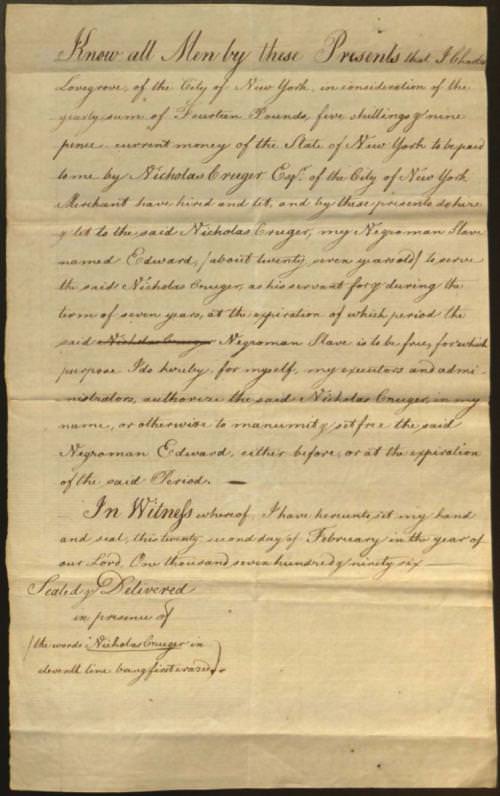 Know all Men by these Presents that I Charles
Lovegrove, of the City of New York, in consideration of the
yearly sum of Fourteen Pounds, five shillings & nine
pence current money of the State of New York to be paid
to me by Nicholas Cruger Esqr. of the City of New York
Merchant have hired and let, and by these presents do hire
& let to the said Nicholas Cruger, my Negroman Slave
named Edward, (about twenty seven years old) to serve
the said Nicholas Cruger, as his servant for & during the
term of seven years, at the expiration of which period the
said Nicholas Cruger Negroman Slave is to be free, for which
purpose I do hereby, for myself, my executors and admi-
nistrators, authorize the said Nicholas Cruger, in my
name, or otherwise to manumit & set free the said
Negroman Edward, either before, or at the expiration
of the said Period. —
In Witness whereof, I have hereunto set my hand
and seal, this twenty second day of February in the year of
our Lord, One thousand seven hundred & ninety six —
Sealed & Delivered
in presence of
(the words "Nicholas Cruger in
eleventh line being first erased)